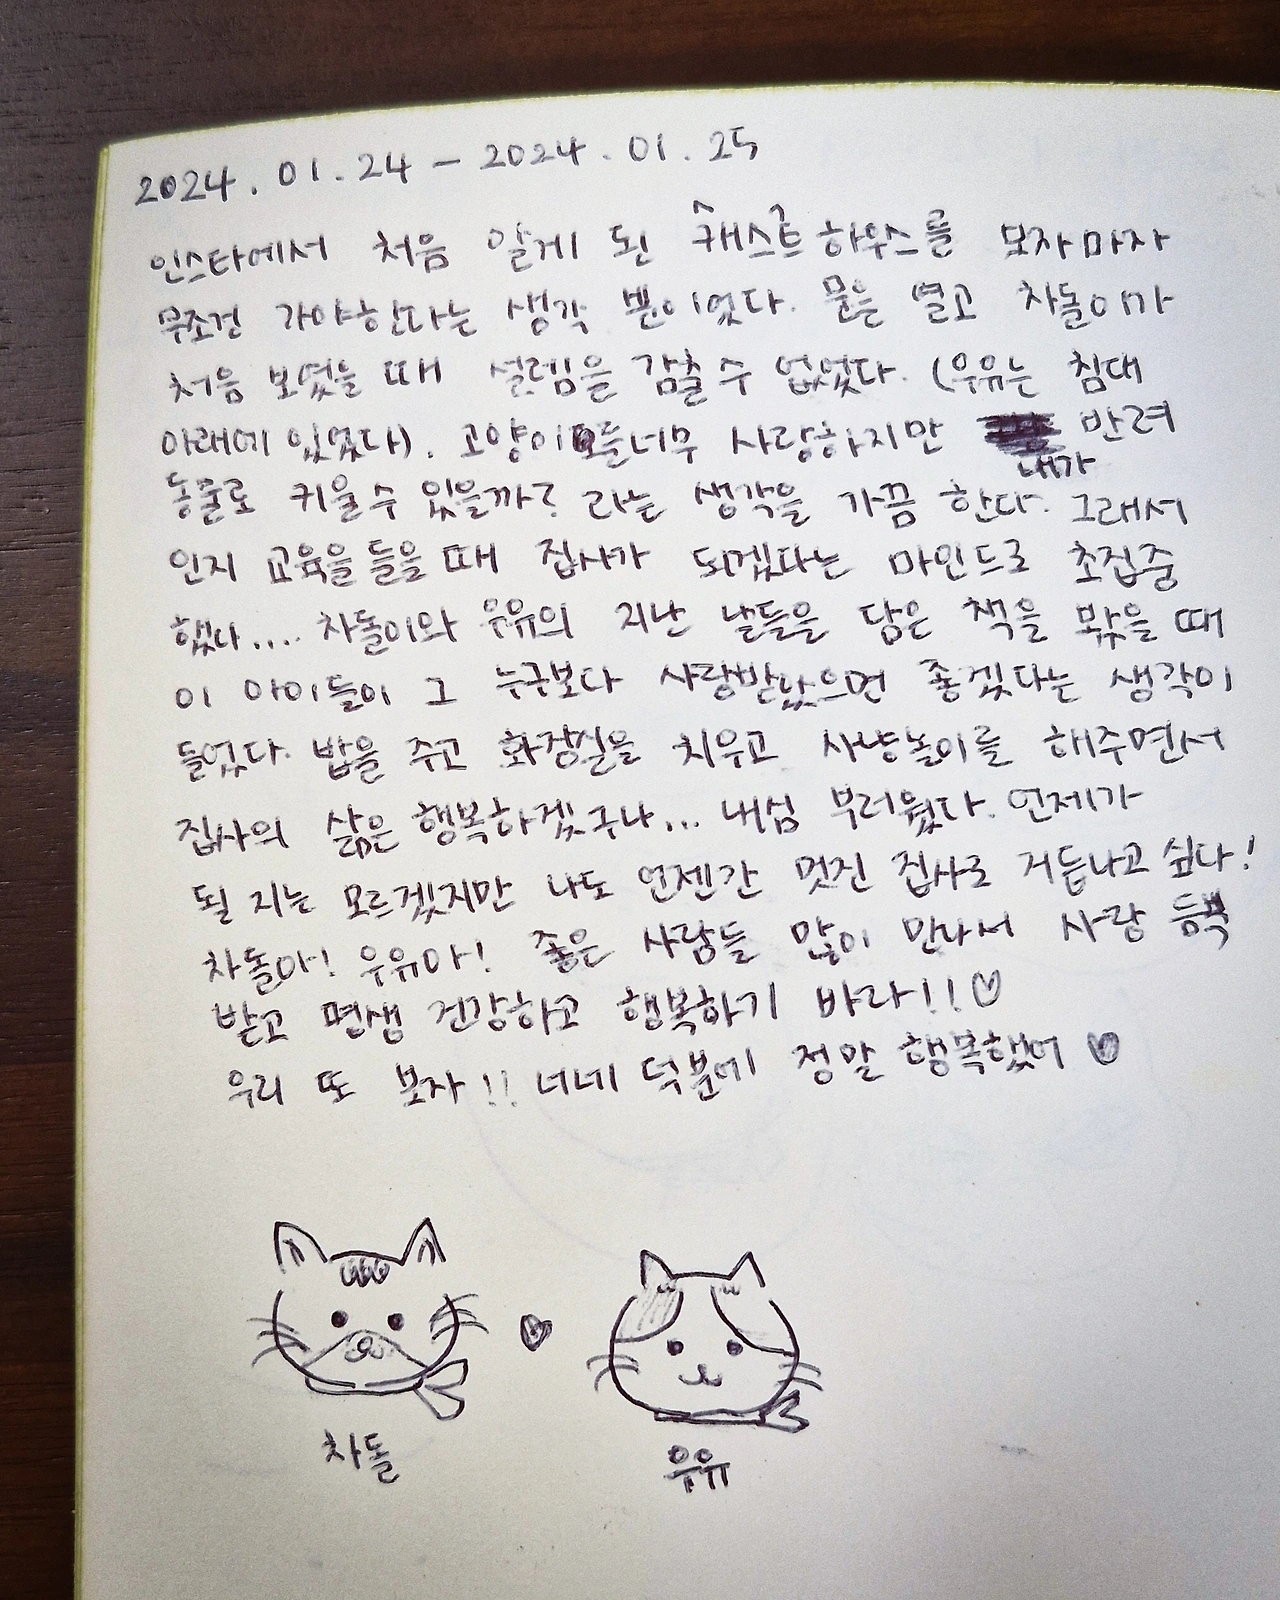 2024. 01. 24 - 2024. 01. 25
인스타에서 처음 알게 된 캐스트하우스를 보자마자
무조건 가야한다는 생각 뿐이었다. 문을 열고 차돌이가
처음 보였을 때 설렘을 감출 수 없었다. (우유는 침대
아래에 있었다). 고양이들 너무 사랑하지만 반려
내가
동물로 키울 수 있을까? 라는 생각을 가끔 한다. 그래서
인지 교육을 들을 때 집사가 되겠다는 마인드로 초집중
했다.... 차돌이와 우유의 지난 날들을 담은 책을 봤을 때
이 아이들이 그 누구보다 사랑받았으면 좋겠다는 생각이
들었다. 밥을 주고 화장실을 치우고 사냥놀이를 해주면서
집사의 삶은 행복하겠구나... 내심 부러웠다. 언제가
될 지는 모르겠지만 나도 언젠간 멋진 집사로 거듭나고 싶다!
차돌아! 우유야! 좋은 사람들 많이 만나서 사랑 듬뿍
받고 평생 건강하고 행복하기 바라!! ♡
우리 또 보자!! 너네 덕분에 정말 행복했어 ♡
차돌 우유